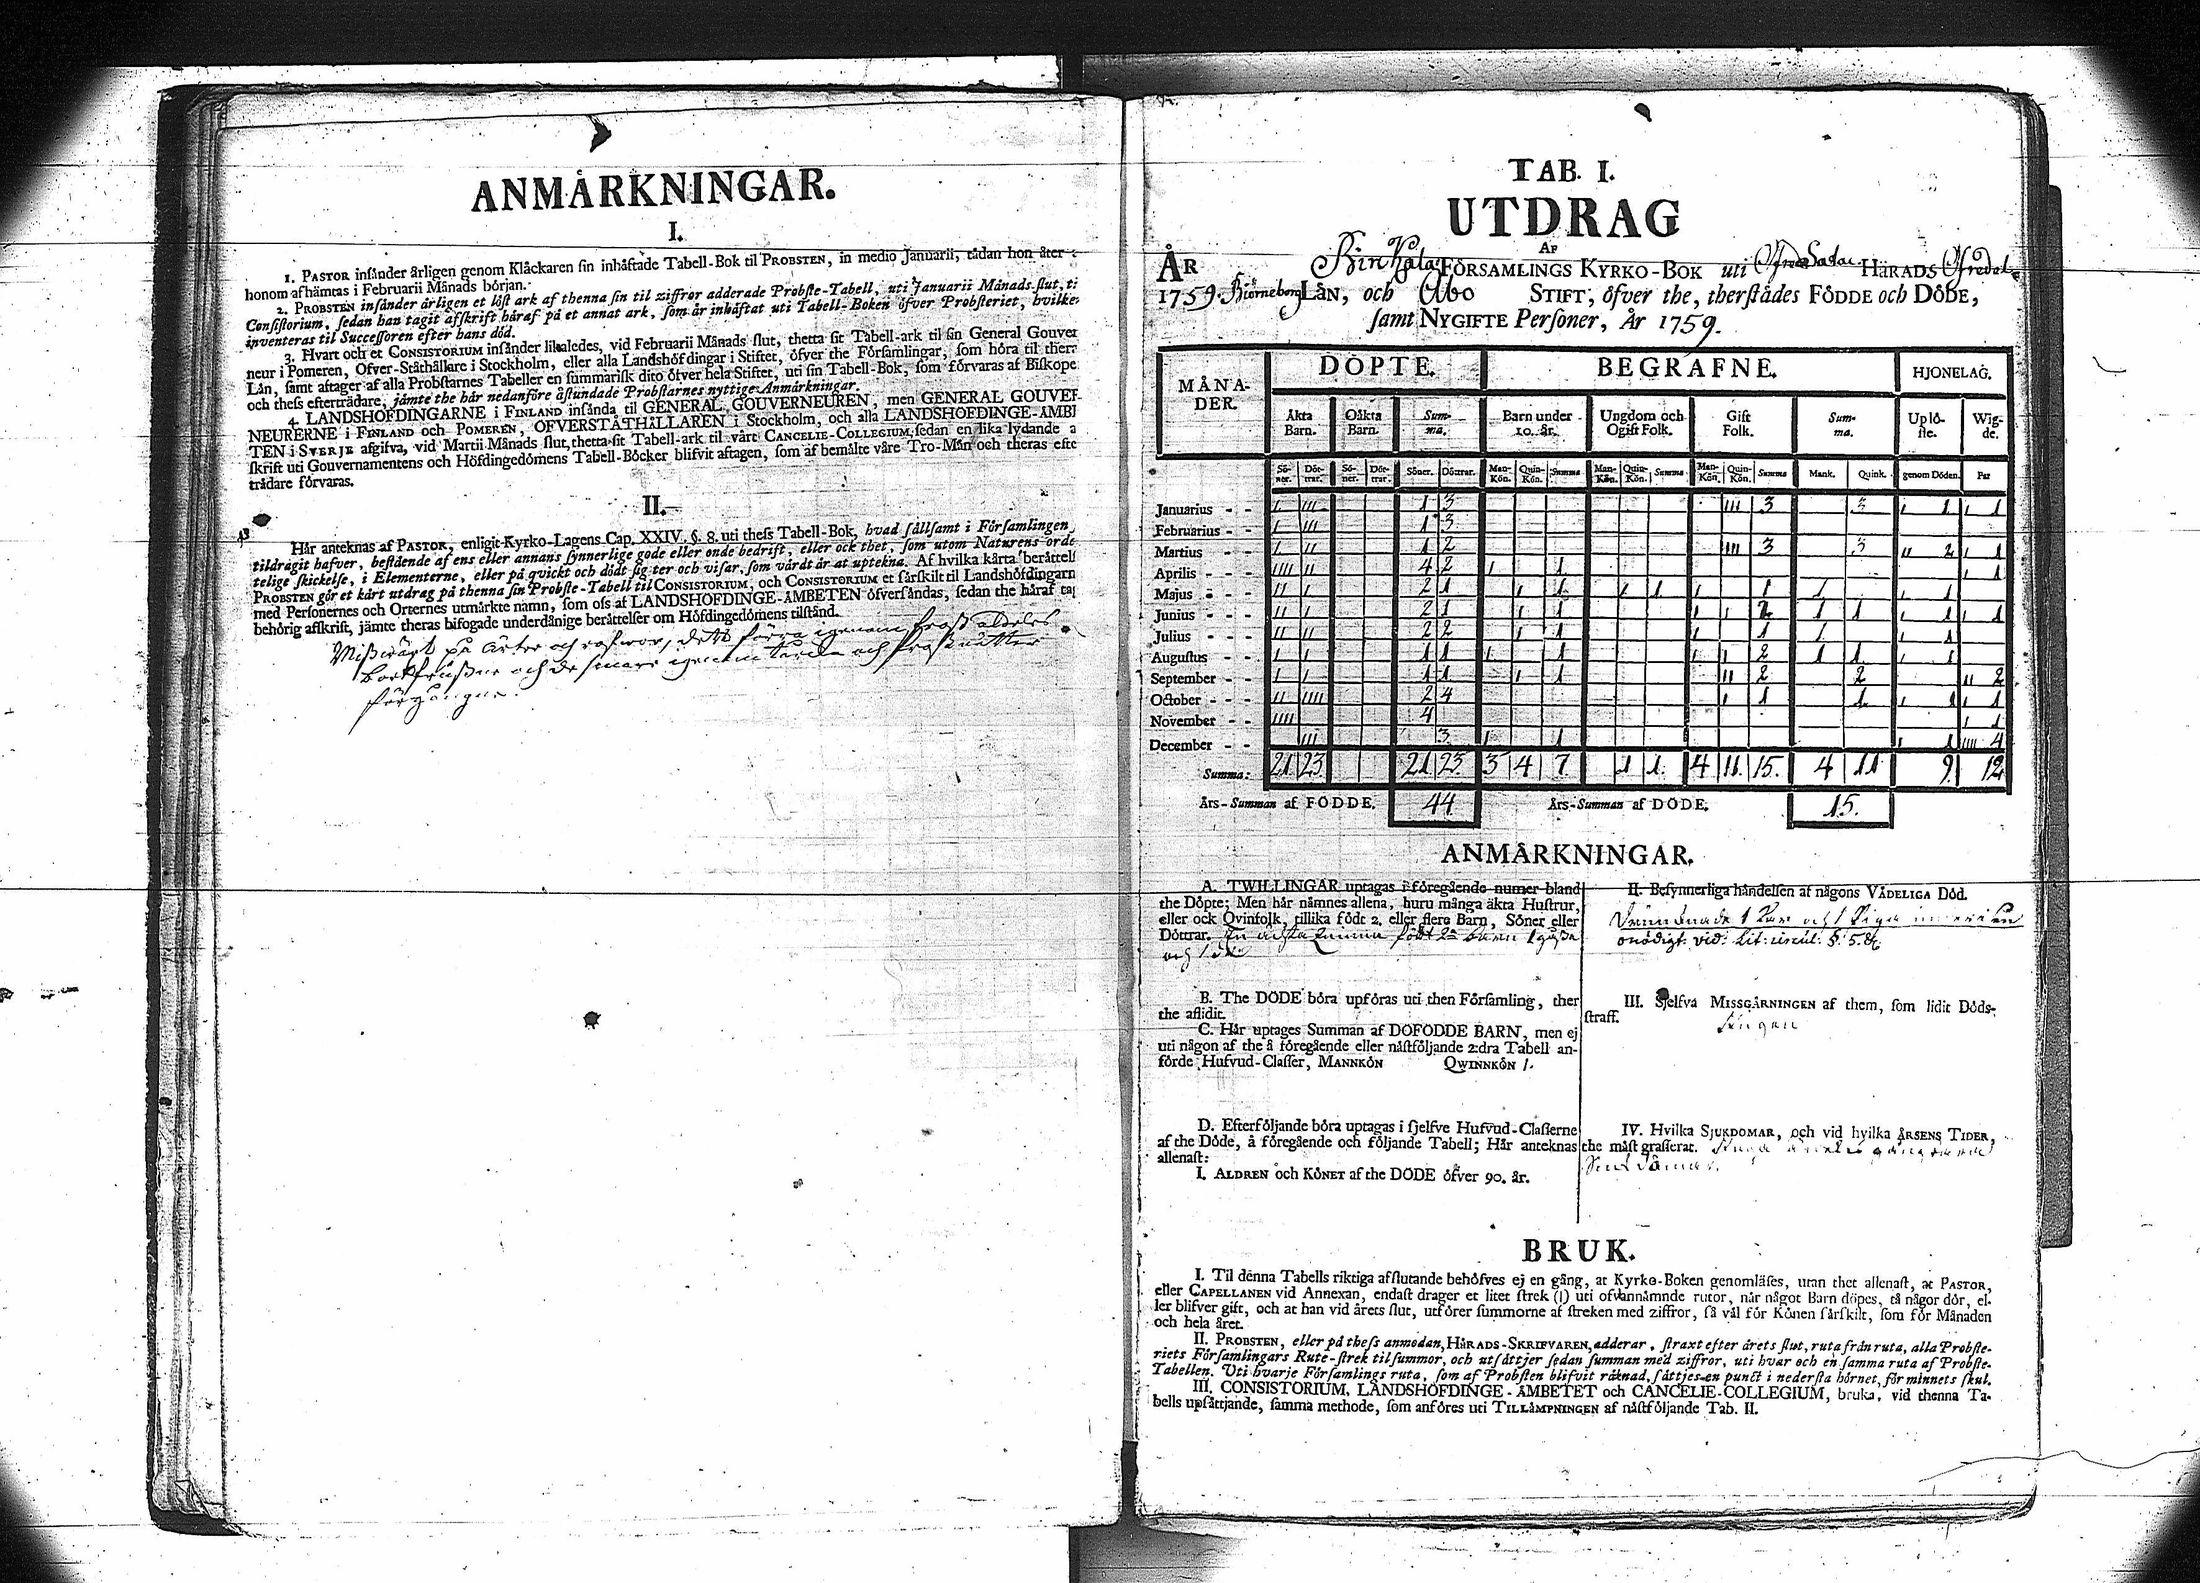 ANMÅRKNINGAR.
I.
1. PASTOR insånder årligen genom Klåckaren sin inhåftade Tabell-Bok til PROBSTEN, in medio Januarii, tådan hon åter
honom afhåmtas i Februarii Månads början.
2. PROBSTEN insånder årligen et löst ark af thenna sin til ziffror adderade Probste-Tabell, uti Januarii Månads slut, ti
Consistorium, sedan han tagit afskrift håraf på et annat ark, som år inhåftat uti Tabell-Boken öfver Probsteriet, hvilke
inventeras til Successoren efter hans död.
3. Hvart och et CONSISTORIUM insånder likaledes, vid Februarii Månads slut, thetta sit Tabell-ark til sin General Gouver
neur i Pomeren, Ofver-Ståthållare i Stockholm, eller alla Landshöfdingar i Stiftet, öfver the Församlingar, som höra til ther
Lån, samt aftager af alla Probstarnes Tabeller en summarisk dito öfver hela Stiftet, uti sin Tabell-Bok, som förvaras af Biskope
och thess efterträdare, jämte the hår nedanföre åstundade Probstarnes nyttige Anmårkningar.
4. LANDSHÖFDINGARNE i FINLAND insånda til GENERAL GOUVERNEUREN, men GENERAL GOUVER-
NEURERNE i FINLAND och POMEREN, OFVERSTÅTHÅLLAREN i Stockholm, och alla LANDSHÖFDINGE-ÅMBE
TEN i SVERJE afgifva, vid Martii Månads slut, thetta sit Tabell-ark til vårt CANCELIE-COLLEGIUM, sedan en lika lydande a
skrift uti Gouvernamentens och Höfdingedömens Tabell-Böcker blifvit aftagen, som af bemålte våre Tro-Mån och theras efte
trådare förvaras.
II.
Hår anteknas af PASTOR, enligit Kyrko-Lagens Cap. XXIV. §. 8. uti thess Tabell-Bok, hvad sållsamt i Församlingen
tildragit hafver, bestående af ens eller annans synnerlige gode eller onde bedrift, eller ock thet, som utom Naturens orde
telige skickelse, i Elementerne, eller på qvickt och dödt sig ter och visar, som vårdt år at uptekna. Af hvilka kårta beråttels
PROBSTEN gör et kårt utdrag på thenna sin Probste-Tabell til CONSISTORIUM, och CONSISTORIUM et sårskilt til Landshöfdingarn
med Personernes och Orternes utmårkte namn, som oss af LANDSHÖFDINGE-ÅMBETEN öfversåndas, sedan the håraf tag
behörig afskrift, jämte theras bifogade underdånige beråttelser om Höfdingedömens tilstånd.
Missväxt på ärter och rofvor, dett förra igenom frost aldeles
bortfrusne och de senare igenom torka och frostnätter
förgångne.
TAB. I.
UTDRAG
AF
ÅR Birkala FÖRSAMLINGS KYRKO-BOK uti Öfre Satac. HÄRADS Öfredel
1759. Biörneborg LÅN, och Åbo STIFT, öfver the, therstådes FÖDDE och DÖDE,
samt NYGIFTE Personer, År 1759.
MÅNA- DER. DÖPTE. BEGRAFNE. HJONELAG.
Åkta Barn. Oåkta Barn. Sum- ma. Barn under 10. år. Ungdom och Ogift Folk. Gift Folk. Sum- ma. Uplö- ste. Wig- de.
Sö- ner. Döt- trar. Sö- ner. Döt- trar. Söner. Döttrar. Man- Kön. Quin- Kön. Summa Man- Kön. Quin- Kön. Summa Man- Kön. Quin- Kön. Summa Mank. Quink. genom Döden. Par
Januarius - - I III 1 3 III 3 3 I 1 I 1
Februarius - - I III 1 3
Martius - - I II 1 2 III 3 3 II 2 I 1
Aprilis - - - IIII II 4 2 I 1 I 1
Majus - - - II I 2 1 I 1 I 1 I 1 1 I 1
Junius - - - II I 2 1 I 1 I I 2 1 1 I 1 I 1
Julius - - - II II 2 2 I 1 I 1 1 I 1
Augustus - - I I 1 1 I 1 I I 2 1 1 I 1
September - - I I 1 1 I 1 II 2 2 II 2
October - - - II IIII 2 4 I 1 1 I 1 I 1
November - - IIII 4 I 1
December - - III 3 I 1 I 1 IIII 4
Summa: 21 23 21 23 3 4 7 1 1 4 11 15. 4 11 9 12
Års-Summan af FÖDDE. 44 Års-Summan af DÖDE. 15.
ANMÅRKNINGAR.
A. TWILLINGAR uptagas i föregående numer bland
the Döpte; Men hår nåmnes allena, huru många åkta Hustrur,
eller ock Qvinfolk, tillika födt 2. eller flere Barn, Söner eller
Döttrar. En ächta qvinna födt 2ne barn 1 gosse
och 1
B. The DÖDE böra upföras uti then Församling, ther
the aflidit.
C. Hår uptages Summan af DÖFÖDDE BARN, men ej
uti någon af the å föregående eller nåstföljande 2:dra Tabell an-
förde Hufvud-Classer, MANNKÖN QWINNKÖN 1.
D. Efterföljande böra uptagas i sjelfve Hufvud-Classerne
af the Döde, å föregående och följande Tabell; Hår anteknas
allenast:
I. ALDREN och KÖNET af the DÖDE öfver 90. år.
II. Besynnerliga håndelsen af någons VÅDELIGA Död.
1 Kar och 1 Piga
onödigt. vid: §. 5.
III. Sjelfva MISSGÅRNINGEN af them, som lidit Döds-
straff.
Ingen
IV. Hvilka SJUKDOMAR, och vid hvilka ÅRSENS TIDER,
the måst grasserat. Inga
BRUK.
I. Til denna Tabells riktiga afslutande behöfves ej en gång, at Kyrko-Boken genomläses, utan thet allenast, at PASTOR,
eller CAPELLANEN vid Annexan, endast drager et litet strek (I) uti ofvannåmnde rutor, når något Barn döpes, tå någor dör, el-
ler blifver gift, och at han vid årets slut, utförer summorne af streken med ziffror, så vål för Könen sårskilt, som för Månaden
och hela året.
II. PROBSTEN, eller på thess anmodan, HÅRADS-SKRIFVAREN, adderar, straxt efter årets slut, ruta från ruta, alla Probste-
riets Församlingars Rute-strek til summor, och utsåttjer sedan summan med ziffror, uti hvar och en samma ruta af Probste-
Tabellen. Uti hvarje Församlings ruta, som af Probsten blifvit råknad, såttjes en punct i nedersta hörnet, för minnets skul.
III. CONSISTORIUM, LANDSHÖFDINGE-ÅMBETET och CANCELIE-COLLEGIUM, bruka, vid thenna Ta-
bells upsåttjande, samma methode, som anföres uti TILLÅMPNINGEN af nåstföljande Tab. II.